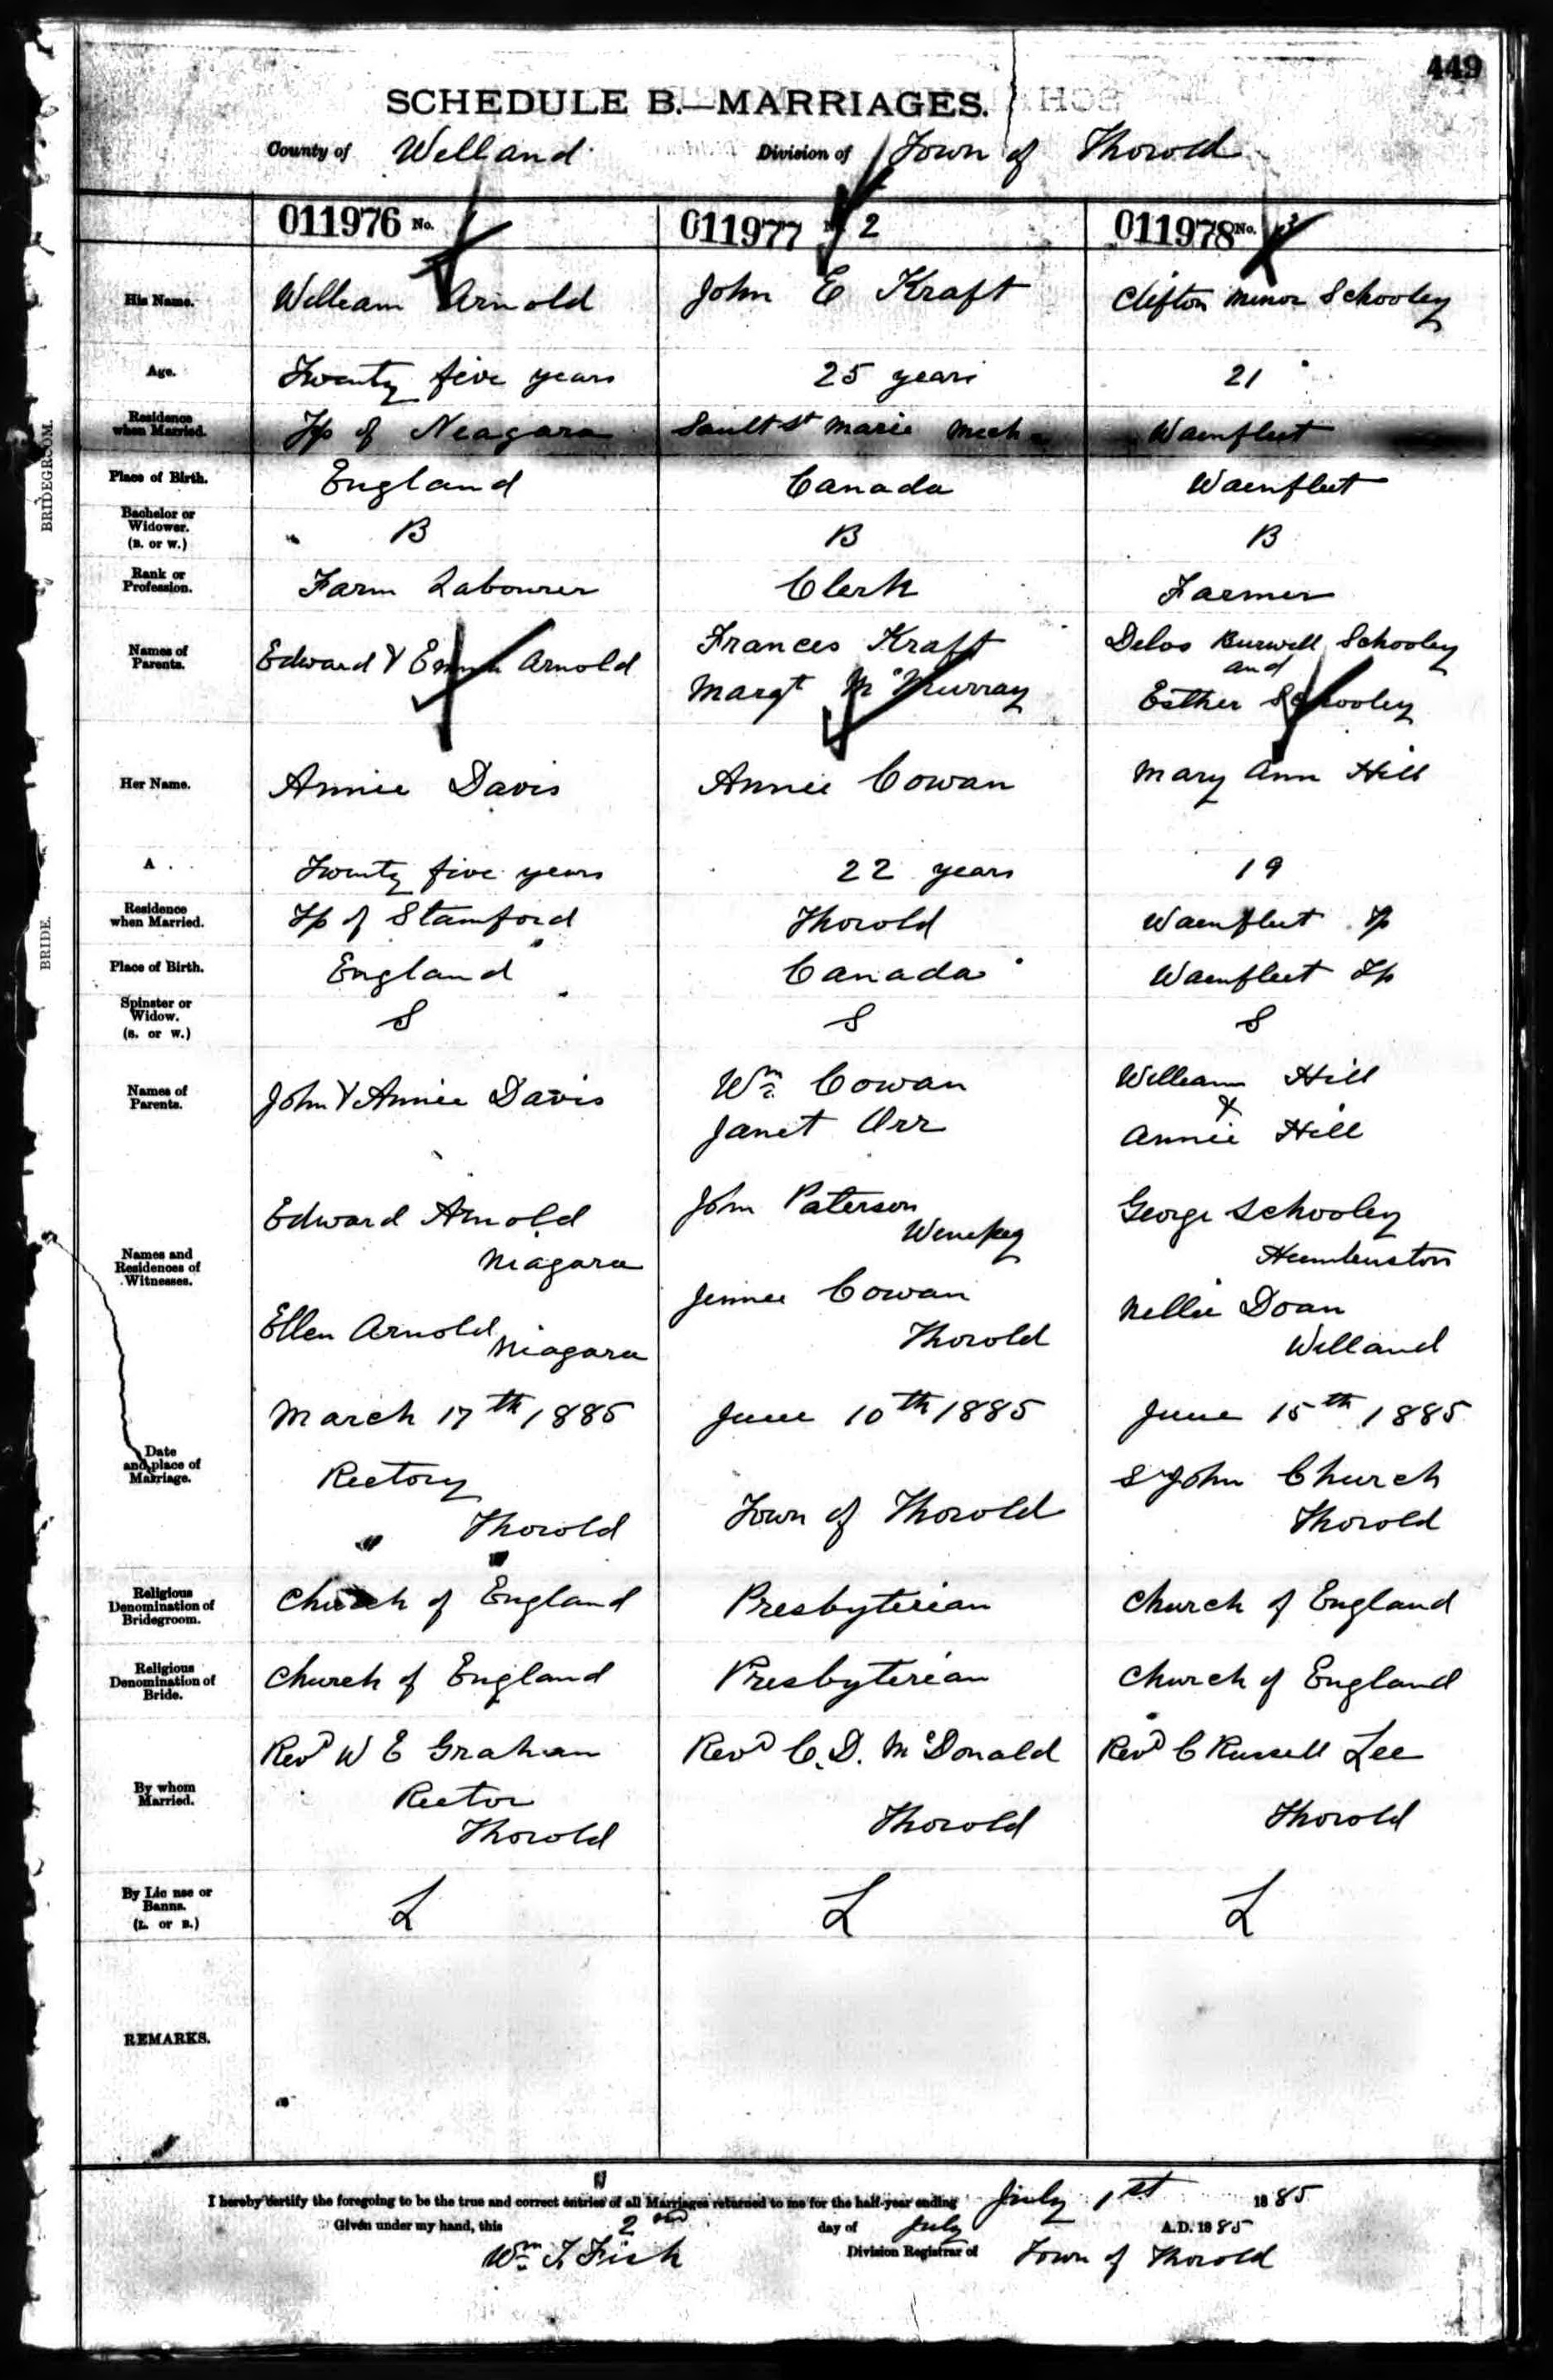 449
SCHEDULE B.—MARRIAGES.
County of Welland Division of Town of Thorold
011976 No. 1
011977 No. 2
011978 No. 3
BRIDEGROOM.
His Name. William Arnold John E Kraft Clifton Minor Schooley
Age. Twenty five years 25 years 21
Residence when Married. Tp of Niagara Sault St Marie Mich Wainfleet
Place of Birth. England Canada Wainfleet
Bachelor or Widower. (B. or W.) B B B
Rank or Profession. Farm Labourer Clerk Farmer
Names of Parents. Edward & Emma Arnold
Frances Kraft
Margt McMurray
Delos Burwell Schooley
and
Esther Schooley
BRIDE.
Her Name. Annie Davis Annie Cowan Mary Ann Hill
A . . Twenty five years 22 years 19
Residence when Married. Tp of Stamford Thorold Wainfleet Tp
Place of Birth. England Canada Wainfleet Tp
Spinster or Widow. (S. or W.) S S S
Names of Parents. John & Annie Davis
Wm Cowan
Janet Orr
William Hill
&
Annie Hill
Names and Residences of Witnesses.
Edward Arnold
Niagara
Ellen Arnold
Niagara
John Paterson
Winipeg
Jennie Cowan
Thorold
George Schooley
Humberston
Nellie Doan
Welland
Date and place of Marriage.
March 17th 1885
Rectory
Thorold
June 10th 1885
Town of Thorold
June 15th 1885
St John Church
Thorold
Religious Denomination of Bridegroom. Church of England Presbyterian Church of England
Religious Denomination of Bride. Church of England Presbyterian Church of England
By whom Married.
Revd W E Graham
Rector
Thorold
Revd C. D. McDonald
Thorold
Revd C Russell Lee
Thorold
By Lic nse or Banns. (L. or B.) L L L
REMARKS.
I hereby certify the foregoing to be the true and correct entries of all Marriages returned to me for the half-year ending July 1st 1885
Given under my hand, this 2nd day of July A.D. 1885
Wm T. Fish Division Registrar of Town of Thorold